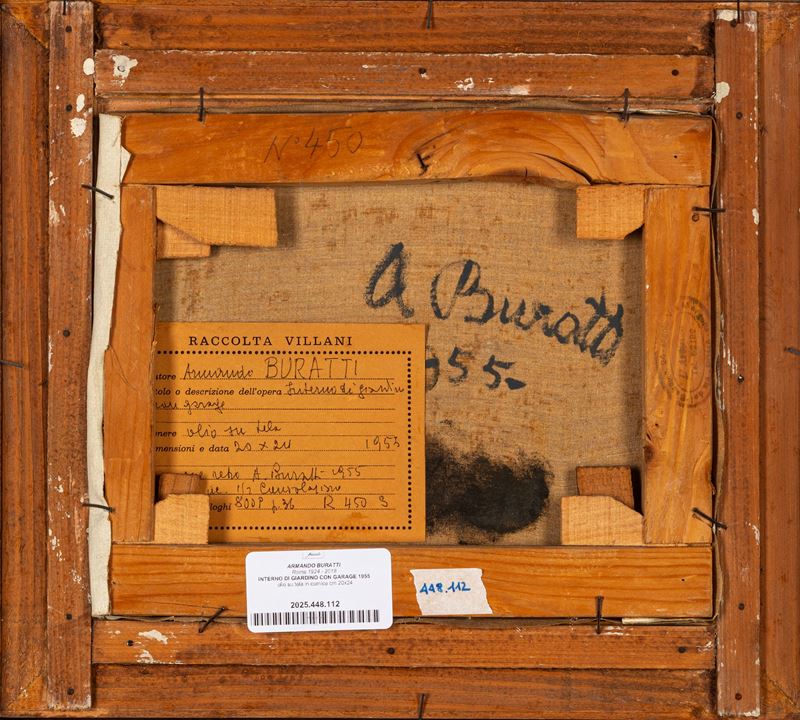 N° 450
A Buratti
1955-
RACCOLTA VILLANI
tore Armando BURATTI
tolo o descrizione dell'opera Interno di giardino
con garage
nere olio su tela
mensioni e data 20 x 24 1955
retro A. Buratti - 1955
loghi 800P p. 36 R 450 S
ARMANDO BURATTI
Roma 1924 - 2018
INTERNO DI GIARDINO CON GARAGE 1955
olio su tela in cornice cm 20x24
2025.448.112
448.112